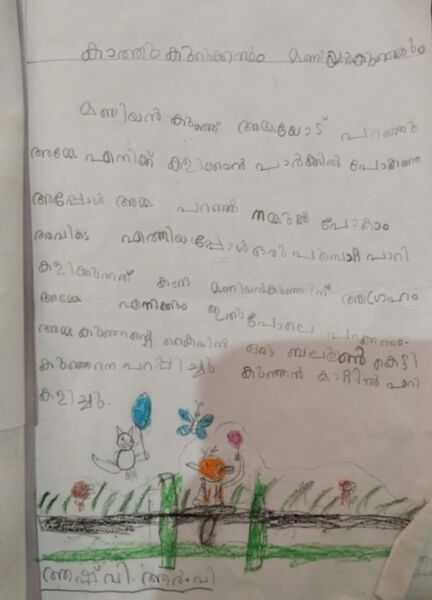 കാത്തു കുറുക്കനും മണിയൻകുഞ്ഞും
മണിയൻ കുഞ്ഞ് അമ്മയോട് പറഞ്ഞു
അമ്മേ എനിക്ക് കളിക്കാൻ പാർക്കിൽ പോകണം
അപ്പോൾ അമ്മ പറഞ്ഞു നമ്മുക്ക് പോകാം
അവിടെ എത്തിയപ്പോൾ ഒരു പൂമ്പാറ്റ പാറി
കളിക്കുന്നത് കണ്ട മണിയൻകുഞ്ഞിന് ആഗ്രഹം
അമ്മേ എനിക്കും ഇതുപോലെ പറക്കണം.
അമ്മ കുഞ്ഞന്റെ കൈയിൽ ഒരു ബലൂൺ കെട്ടി
കുഞ്ഞനെ പറപ്പിച്ചു കുഞ്ഞൻ കാറ്റിൽ പാറി
കളിച്ചു.
ആർ.വി